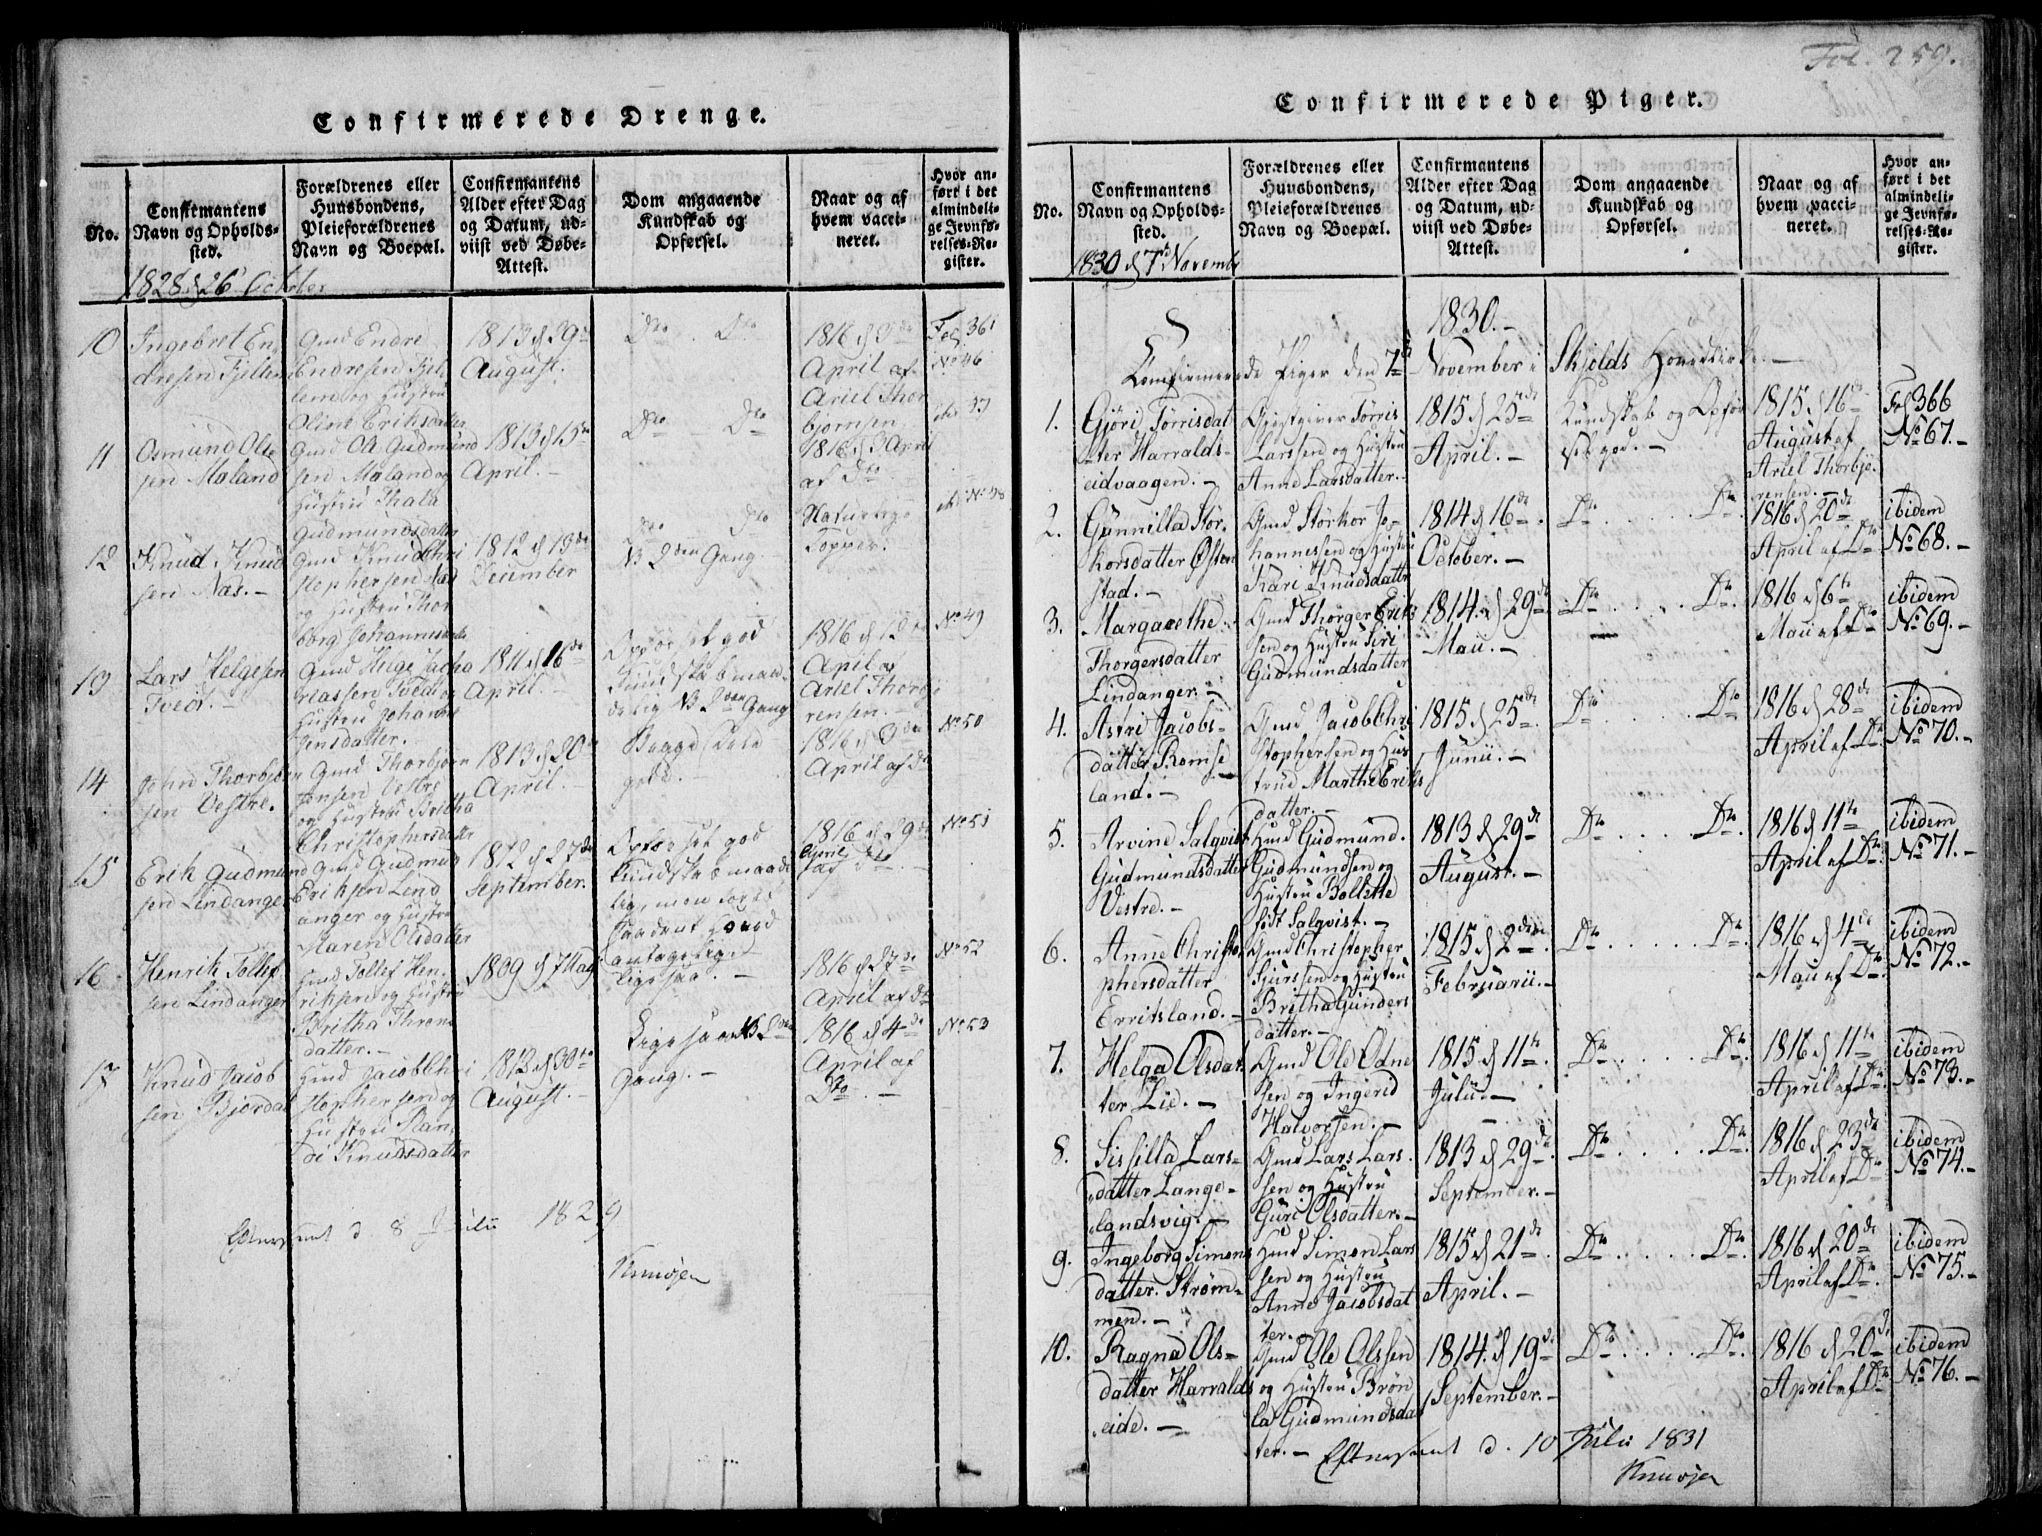 Confirmerede Drenge.
No.
Confirmantens
Navn og Opholds-
sted.
Forældrenes eller
Huusbondens,
Pleieforældrenes
Navn og Boepæl.
Confirmantens
Alder efter Dag
og Datum, ud-
viist ved Døbe-
Attest.
Dom angaaende
Kundskab og
Opførsel.
Naar og af
hvem vacci-
neret.
Hvor an-
ført i det
almindeli-
ge Jevnfø-
relses-Re-
gister.
1828 d 26 October
10
Ingebret En
dresen Fjellen
Gmd Endre
Endresen Fjel
len og Hustru
Oline Eriksdatter
1813 d 29de
August.
Dto Dto
1816 d 3de
April af
Ariel Thor
bjørnsen
Fol 361
No 46
11
Osmund Ole
sen Maland
Gmd Ole Gudmund
sen Maland og
Hustru Thala
Gudmundsdatter
1813 d 15de
April.
Dto Dto
1816 d 3 April
af Dto
12
Knud Knud
sen Næs.
Gmd Knud Chri
stophersen Næs
og Hustru Thor
borg Johannesdatter
1812 d 13de
December
Dto Dto
NB 2den Gang
Naturlige
Kopper.
13
Lars Helgesen
Tvedt.
Gmd Helge Zacha
riassen Tvedt og
Hustru Johanne
Jensdatter.
1811 d 16de
April.
Opførsel god
Kundskab maa-
delig NB 2den Gang
1816 d
April af
Ariel Thorbjø
rensen.
No 49
14
John Thorbjørn
sen Vestre.
Gmd Thorbjørn
Jonsen Vestre
og Hustru Britha
Christophersdatter
1813 d 20de
April.
Begge Dele
gode.
1816 d 3den
April af Dto
No 50
15
Erik Gudmund
sen Lindanger
Gmd Gudmund
Eriksen Lind
anger og Hustru
Maren Olsdatter
1812 d 27de
September.
Opførsel god
Kundskab maade
lig, men
1816 d 29de
April
af Dto
No 51
16
Henrik Tollef
sen Lindanger
Hmd Tollef Hen
riksen og Hustru
Britha Thron
datter.
1809 d 7 Maj
ligesaa.
1816 d 27de
April af Dto
No 52
17
Knud Jacob
sen Bjordal
Hmd Jacob Chri
stophersen og
Hustru Ran
di Knudsdatter
1812 d 30te
August.
Ligesaa NB 2den
Gang.
1816 d 4de
April af
Dto
No 53
Efterseet d. 8 Julii 1829
Confirmerede Piger.
Fol. 259.
No.
Confirmantens
Navn og Opholds-
sted.
Forældrenes eller
Huusbondens,
Pleieforældrenes
Navn og Boepæl.
Confirmantens
Alder efter Dag
og Datum, ud-
viist ved Døbe-
Attest.
Dom angaaende
Kundskab og
Opførsel.
Naar og af
hvem vacci-
neret.
Hvor an-
ført i det
almindeli-
ge Jevnfø-
relses-Re-
gister.
1830 d 7de Novembr
1830.
Confirmerede Piger den 7de November i Skjolds Hovedkirke.
1.
Gjøri Tørrisdat
ter Harralds-
eidvaagen.
Gjestgiver Tørris
Larssen og Hustru
Anne Larsdatter.
1815 d 25de
April.
Kundskab og Opfør
sel god.
1815 d 16de
August af
Ariel Thorbjø-
rensen.
Fol 366
No 67.
2.
Gunnilla Stør-
korsdatter Østen
stad.
Gmd Størkor Jo-
hannessen og Hustru
Kari Knudsdatter
1814 d 16de
October.
Dto Dto
1816 d 20de
April af Dto
ibidem
No 68.
3.
Margarethe
Thorgersdatter
Lindanger.
Gmd Thorger Erik
sen og Hustru Siri
Gudmundsdatter
1814 d 29de
Maii.
Dto Dto
1816 d 6te
Maii af Dto
ibidem
No 69.
4.
Astri Jacobs-
datter Romse
land.
Gmd Jacob Chri
stophersen og Hus
true Marthe Eriks
datter.
1815 d 25de
Junii.
Dto Dto
1816 d 28de
April af Dto
ibidem
No 70.
5.
Arvine Salqvist
Gudmundsdatter
Vestre.
Hmd Gudmund
Gudmundsen og
Hustru Bollette
født Salqvist.
1813 d 29de
August.
Dto Dto
1816 d 11te
April af Dto
ibidem
No 71.
6.
Anne Christo
phersdatter
Erritsland.
Gmd Christopher
Sjurssen og Hustru
Britha Gunders
datter.
1815 d 2den
Februarii.
Dto Dto
1816 d 4de
Maii af Dto
ibidem
No 72.
7.
Helga Olsdat
ter Lie.
Gmd Ole Odne
sen og Ingerid
Halvorsen.
1815 d 11te
Julii.
Dto Dto
1816 d 11te
April af Dto
ibidem
No 73.
8.
Sissilla Lars-
datter Lange-
landsvig.
Gmd Lars Lars
sen og Hustru
Guri Olsdatter.
1813 d 29de
September.
Dto Dto
1816 d 23de
April af Dto
ibidem
No 74.
9.
Ingeborg Simons
datter Strøm-
men.
Hmd Simon Lars
sen og Hustru
Anne Jacobsdat
ter.
1815 d 21de
April.
Dto Dto
1816 d 20de
April af Dto
ibidem
No 75.
10.
Ragna Ols-
datter Harralds
eide.
Gmd Ole Olssen
og Hustru Brøn
la Gudmundsdat
ter.
1814 d 19de
September.
Dto Dto
1816 d 20de
April af Dto
ibidem
No 76.
Efterseet d. 10 Julii 1831